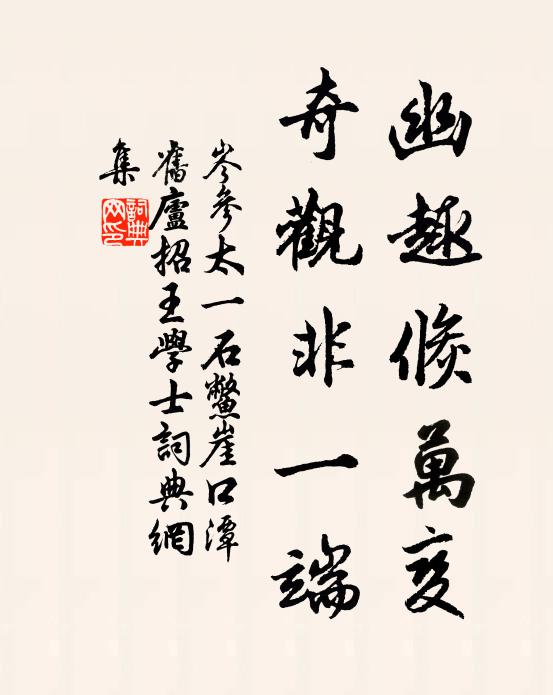 幽趣倐萬変
奇觀非一端
岑參太一石鱉崖口潭
舊廬招王學士詞典網
集
詞典
网印